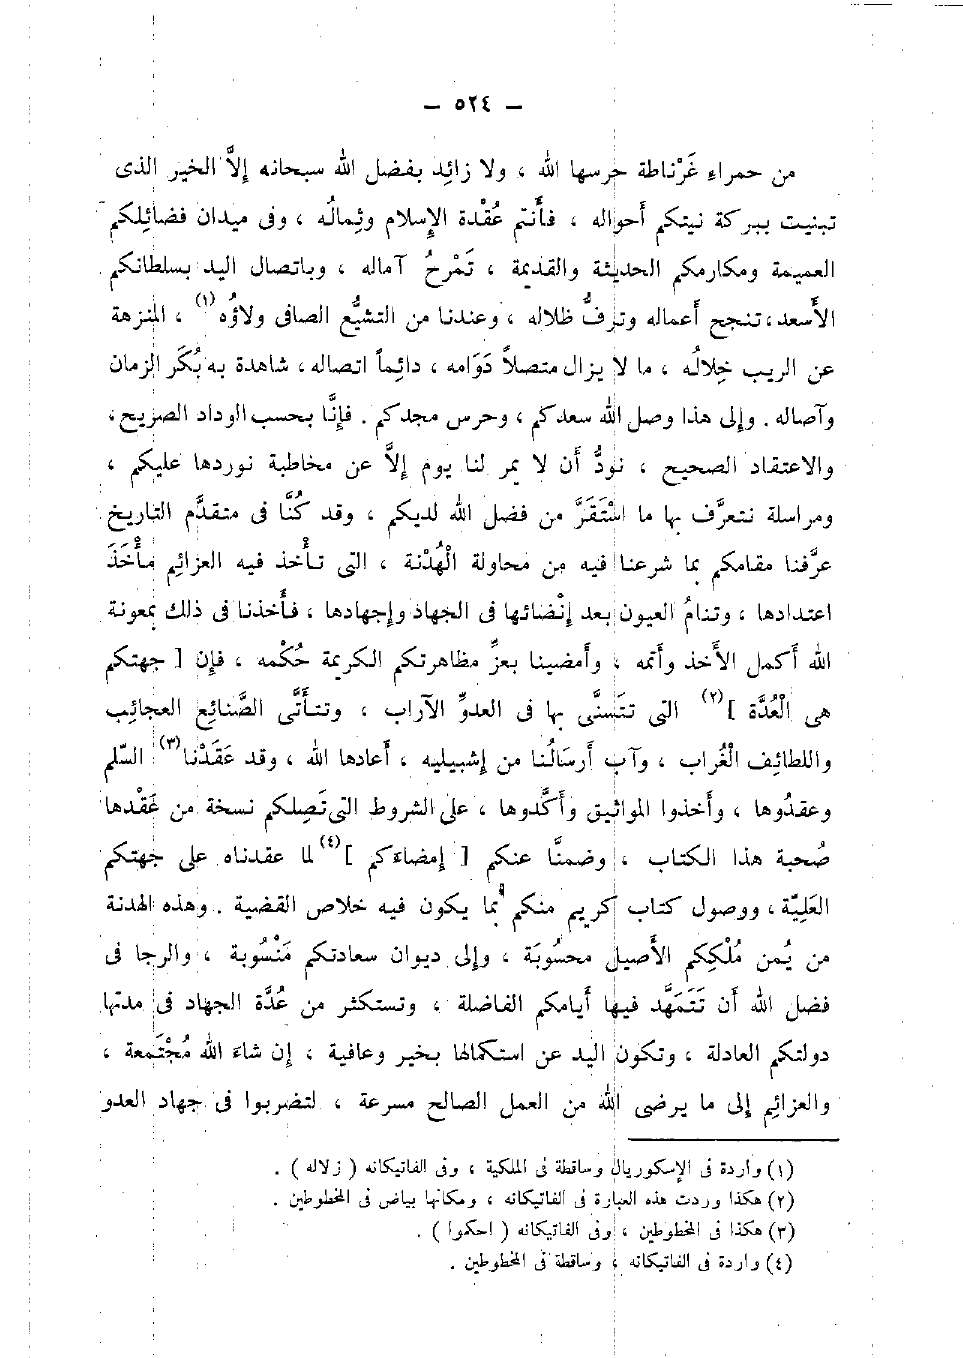 — ٥٢٤ —
من حمراء غَرْناطة حرسها الله ، ولا زائد بفضل الله سبحانه إلاَّ الخير الذى
تبنيت ببركة نيتكم أحواله ، فأَنتم عُقْدة الإِسلام وثِمالُه ، وفى ميدان فضائلكم
العميمة ومكارمكم الحديثة والقديمة ، تَمْرحُ آماله ، وباتصال اليد بسلطانكم
الأَسعد، تنجح أعماله وترفُّ ظلاله ، وعندنا من التشيُّع الصافى ولاؤُه (١) ، المنزهة
عن الريب خِلالُه ، ما لا يزال متصلاً دَوَامه ، دائماً اتصاله ، شاهدة به بُكَر الزمان
وآصاله . وإلى هذا وصل الله سعدكم ، وحرس مجدكم . فإنَّا بحسب الوداد الصريح ،
والاعتقاد الصحيح ، نودُّ أن لا يمر لنا يوم إلاَّ عن مخاطبة نوردها عليكم ،
ومراسلة نتعرَّف بها ما اسْتَقَرَّ من فضل الله لديكم ، وقد كُنَّا فى متقدَّم التاريخ
عرَّفنا مقامكم بما شرعنا فيه من محاولة الْهُدْنة ، التى تأْخذ فيه العزائم مأْخَذَ
اعتدادها ، وتنامُ العيون بعد إِنْضائها فى الجهاد وإجهادها ، فأَخذنا فى ذلك بمعونة
الله أكمل الأَخذ وأتمه ، وأمضينا بعزِّ مظاهرتكم الكريمة حُكْمه ، فإن [ جهتكم
هى الْعُدَّة ] (٢) التى تتَسنَّى بها فى العدوِّ الآراب ، وتتأَتَّى الصَّنائع العجائب
واللطائف الْغُراب ، وآب أرسَالُنا من إشبيليه ، أعادها الله ، وقد عَقَدْنا (٣) السّلم
وعقدُوها ، وأخذوا المواثيق وأَكَّدوها ، على الشروط التى تَصِلكم نسخة من عَقْدها
صُحبة هذا الكتاب ، وضمنَّا عنكم [ إمضاءكم ] (٤) لما عقدناه على جهتكم
العَلِيّة ، ووصول كتاب كريم منكم بما يكون فيه خلاص القضية . وهذه الهدنة
من يُمن مُلْكِكم الأَصيل محسُوبَة ، وإلى ديوان سعادتكم مَنْسُوبة ، والرجا فى
فضل الله أن تَتَمَهَّد فيها أيامكم الفاضلة ، وتستكثر من عُدَّة الجهاد فى مدتها
دولتكم العادلة ، وتكون اليد عن استكمالها بخير وعافية ، إن شاءَ الله مُجْتَمعة ،
والعزائم إلى ما يرضى الله من العمل الصالح مسرعة ، لتضربوا فى جهاد العدو
(١) واردة فى الإسكوريال وساقطة فى الملكية ، وفى الفاتيكانه ( زلاله ) .
(٢) هكذا وردت هذه العبارة فى الفاتيكانه ، ومكانها بياض فى المخطوطين .
(٣) هكذا فى المخطوطين ، وفى الفاتيكانه ( احكموا ) .
(٤) واردة فى الفاتيكانه ، وساقطة فى المخطوطين .